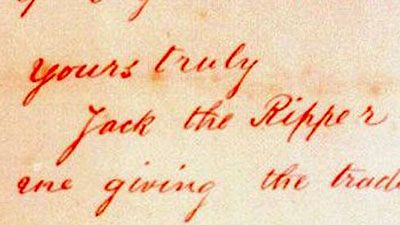 yours truly
Jack the Ripper
me giving the trade